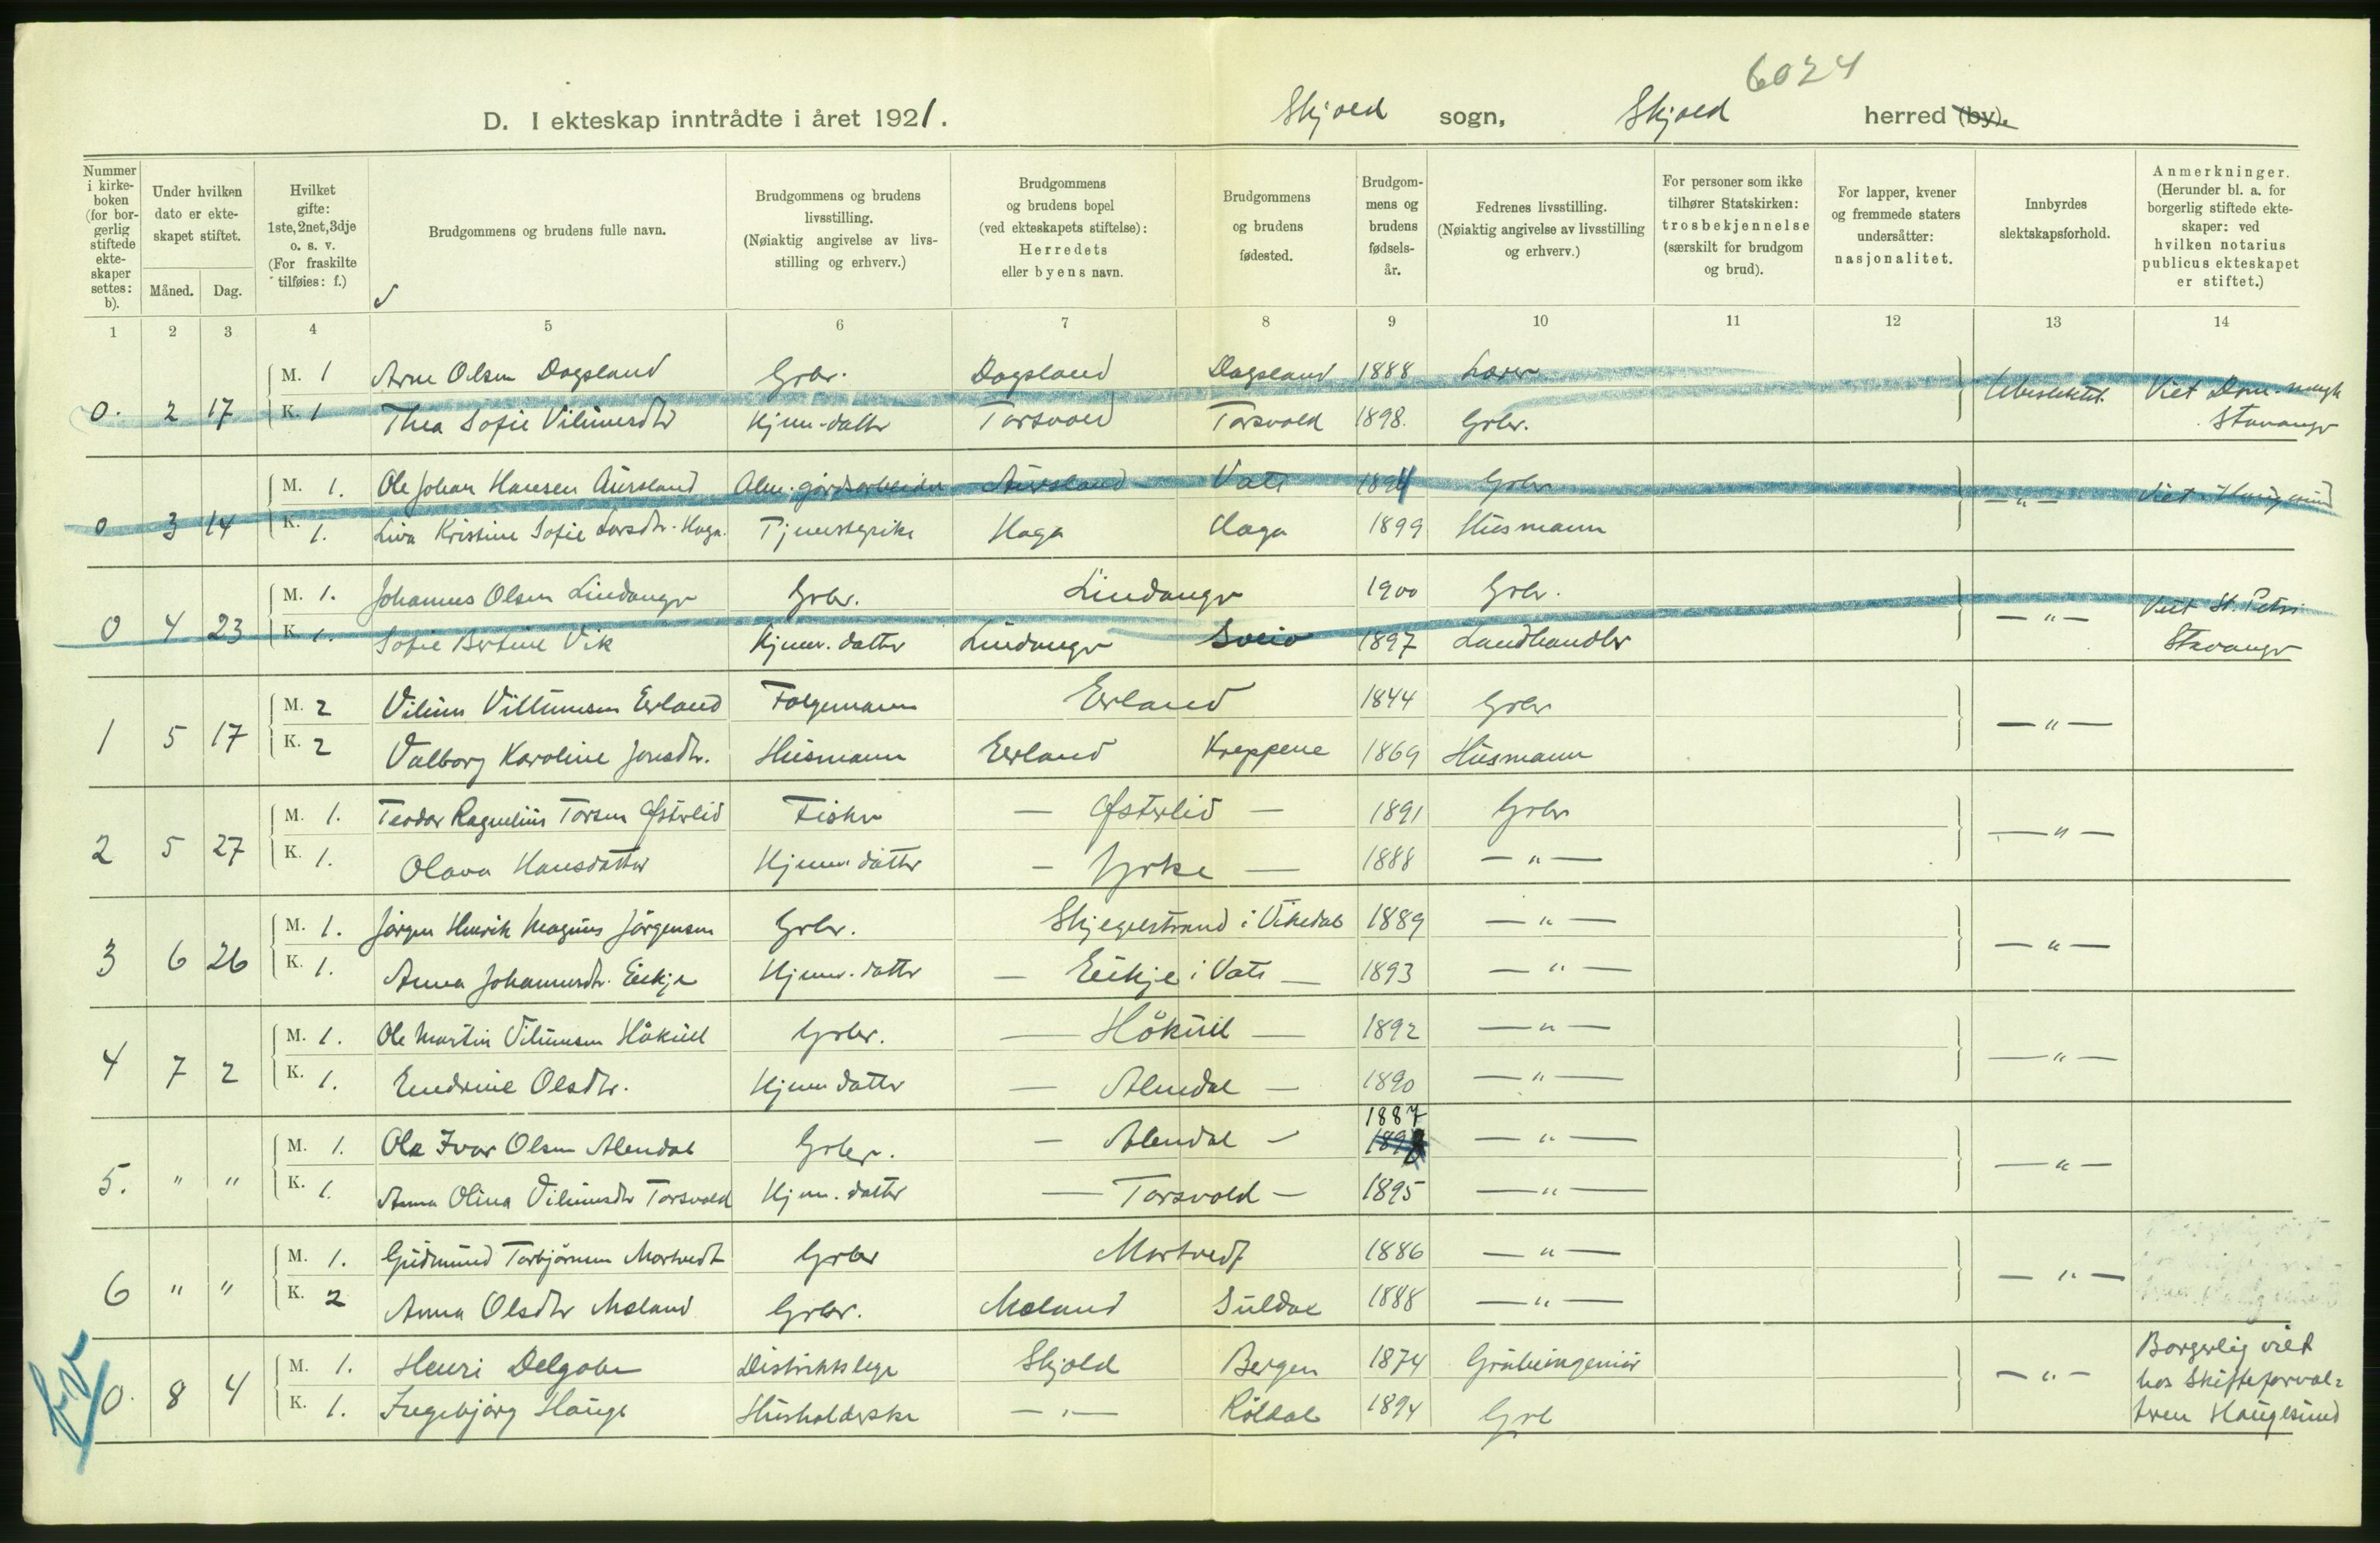 6024
D. I ekteskap inntrådte i året 1921. Skjold sogn, Skjold herred (by).
Nummer i kirke-boken (for bor-gerlig stiftede ekte-skaper settes: b).
Under hvilken dato er ekte-skapet stiftet.
Måned. Dag.
Hvilket gifte: 1ste, 2net, 3dje o. s. v. (For fraskilte tilføies: f.)
Brudgommens og brudens fulle navn.
Brudgommens og brudens livsstilling. (Nøiaktig angivelse av livs-stilling og erhverv.)
Brudgommens og brudens bopel (ved ekteskapets stiftelse): Herredets eller byens navn.
Brudgommens og brudens fødested.
Brudgom-mens og brudens fødsels-år.
Fedrenes livsstilling. (Nøiaktig angivelse av livsstilling og erhverv.)
For personer som ikke tilhører Statskirken: trosbekjennelse (særskilt for brudgom og brud).
For lapper, kvener og fremmede staters undersåtter: nasjonalitet.
Innbyrdes slektskapsforhold.
Anmerkninger. (Herunder bl. a. for borgerlig stiftede ekte-skaper: ved hvilken notarius publicus ekteskapet er stiftet.)
1 2 3 4 5 6 7 8 9 10 11 12 13 14
M. 1 Arne Olsen Dagsland Grbr. Dagsland Dagsland 1888 Lærer
0. 2 17 K. 1 Thea Sofie Vilumsdtr Hjem.datter Torsvold Torsvold 1898. Grbr. Ubeslektet. Viet Dom. Stavanger
M. 1. Ole Johan Hansen Aursland Alm. gårdsarbeider Aursland Vats 1894 Grbr
0 3 14 K. 1. Kristine Sofie Larsdtr. Haga. Tjenestepike Haga Haga 1899 Husmann — " — Viet i Haugesund
M. 1. Johannes Olsen Lindanger Grbr. Lindanger 1900 Grbr.
0 4 23 K. 1. Sofie Bertine Vik Hjem. datter Lindanger Sveio 1897 Landhandler — " — Viet St. Petri Stavanger
M. 2 Vilum Villumsen Erland Følgemann Erland 1844 Grbr
1 5 17 K. 2 Valborg Karoline Jonsdtr. Husmann Erland Kreppene 1869 Husmann — " —
M. 1. Teodor Ragnelius Torsen Østerlid Fisker — Østerlid — 1891 Grbr
2 5 27 K. 1. Olava Hansdatter Hjem. datter — Yrke — 1888 — " — — " —
M. 1. Jørgen Henrik Magnus Jørgensen Grbr. Skjeggestrand i Vikedal 1889 — " —
3 6 26 K. 1. Anna Johannesdtr. Eikje Hjem. datter — Eikje i Vats — 1893 — " — — " —
M. 1. Ole Martin Vilumsen Håkull Grbr. — Håkull — 1892 — " —
4 7 2 K. 1. Endrine Olsdtr. Hjem datter — Alendal — 1890 — " — — " —
M. 1. Ole Ivar Olsen Alendal Grbr. — Alendal — 1887 — " —
5. " " K. 1. Anna Olina Vilumsdtr Torsvold Hjem. datter — Torsvold — 1895 — " — — " —
M. 1. Gudmund Torbjørnsen Mortvedt Grbr Mortvedt 1886 — " —
6 " " K. 2 Anna Olsdtr Mæland Grbr. Mæland Suldal 1888 — " — — " —
M. 1. Henri Delgobe Distriktslege Skjold Bergen 1874 Grubeingeniør
0. 8 4 K. 1. Ingebjørg Hauge Husholderske — " — Røldal 1894 Grb — " — Borgerlig viet hos Skifteforval=teren Haugesund